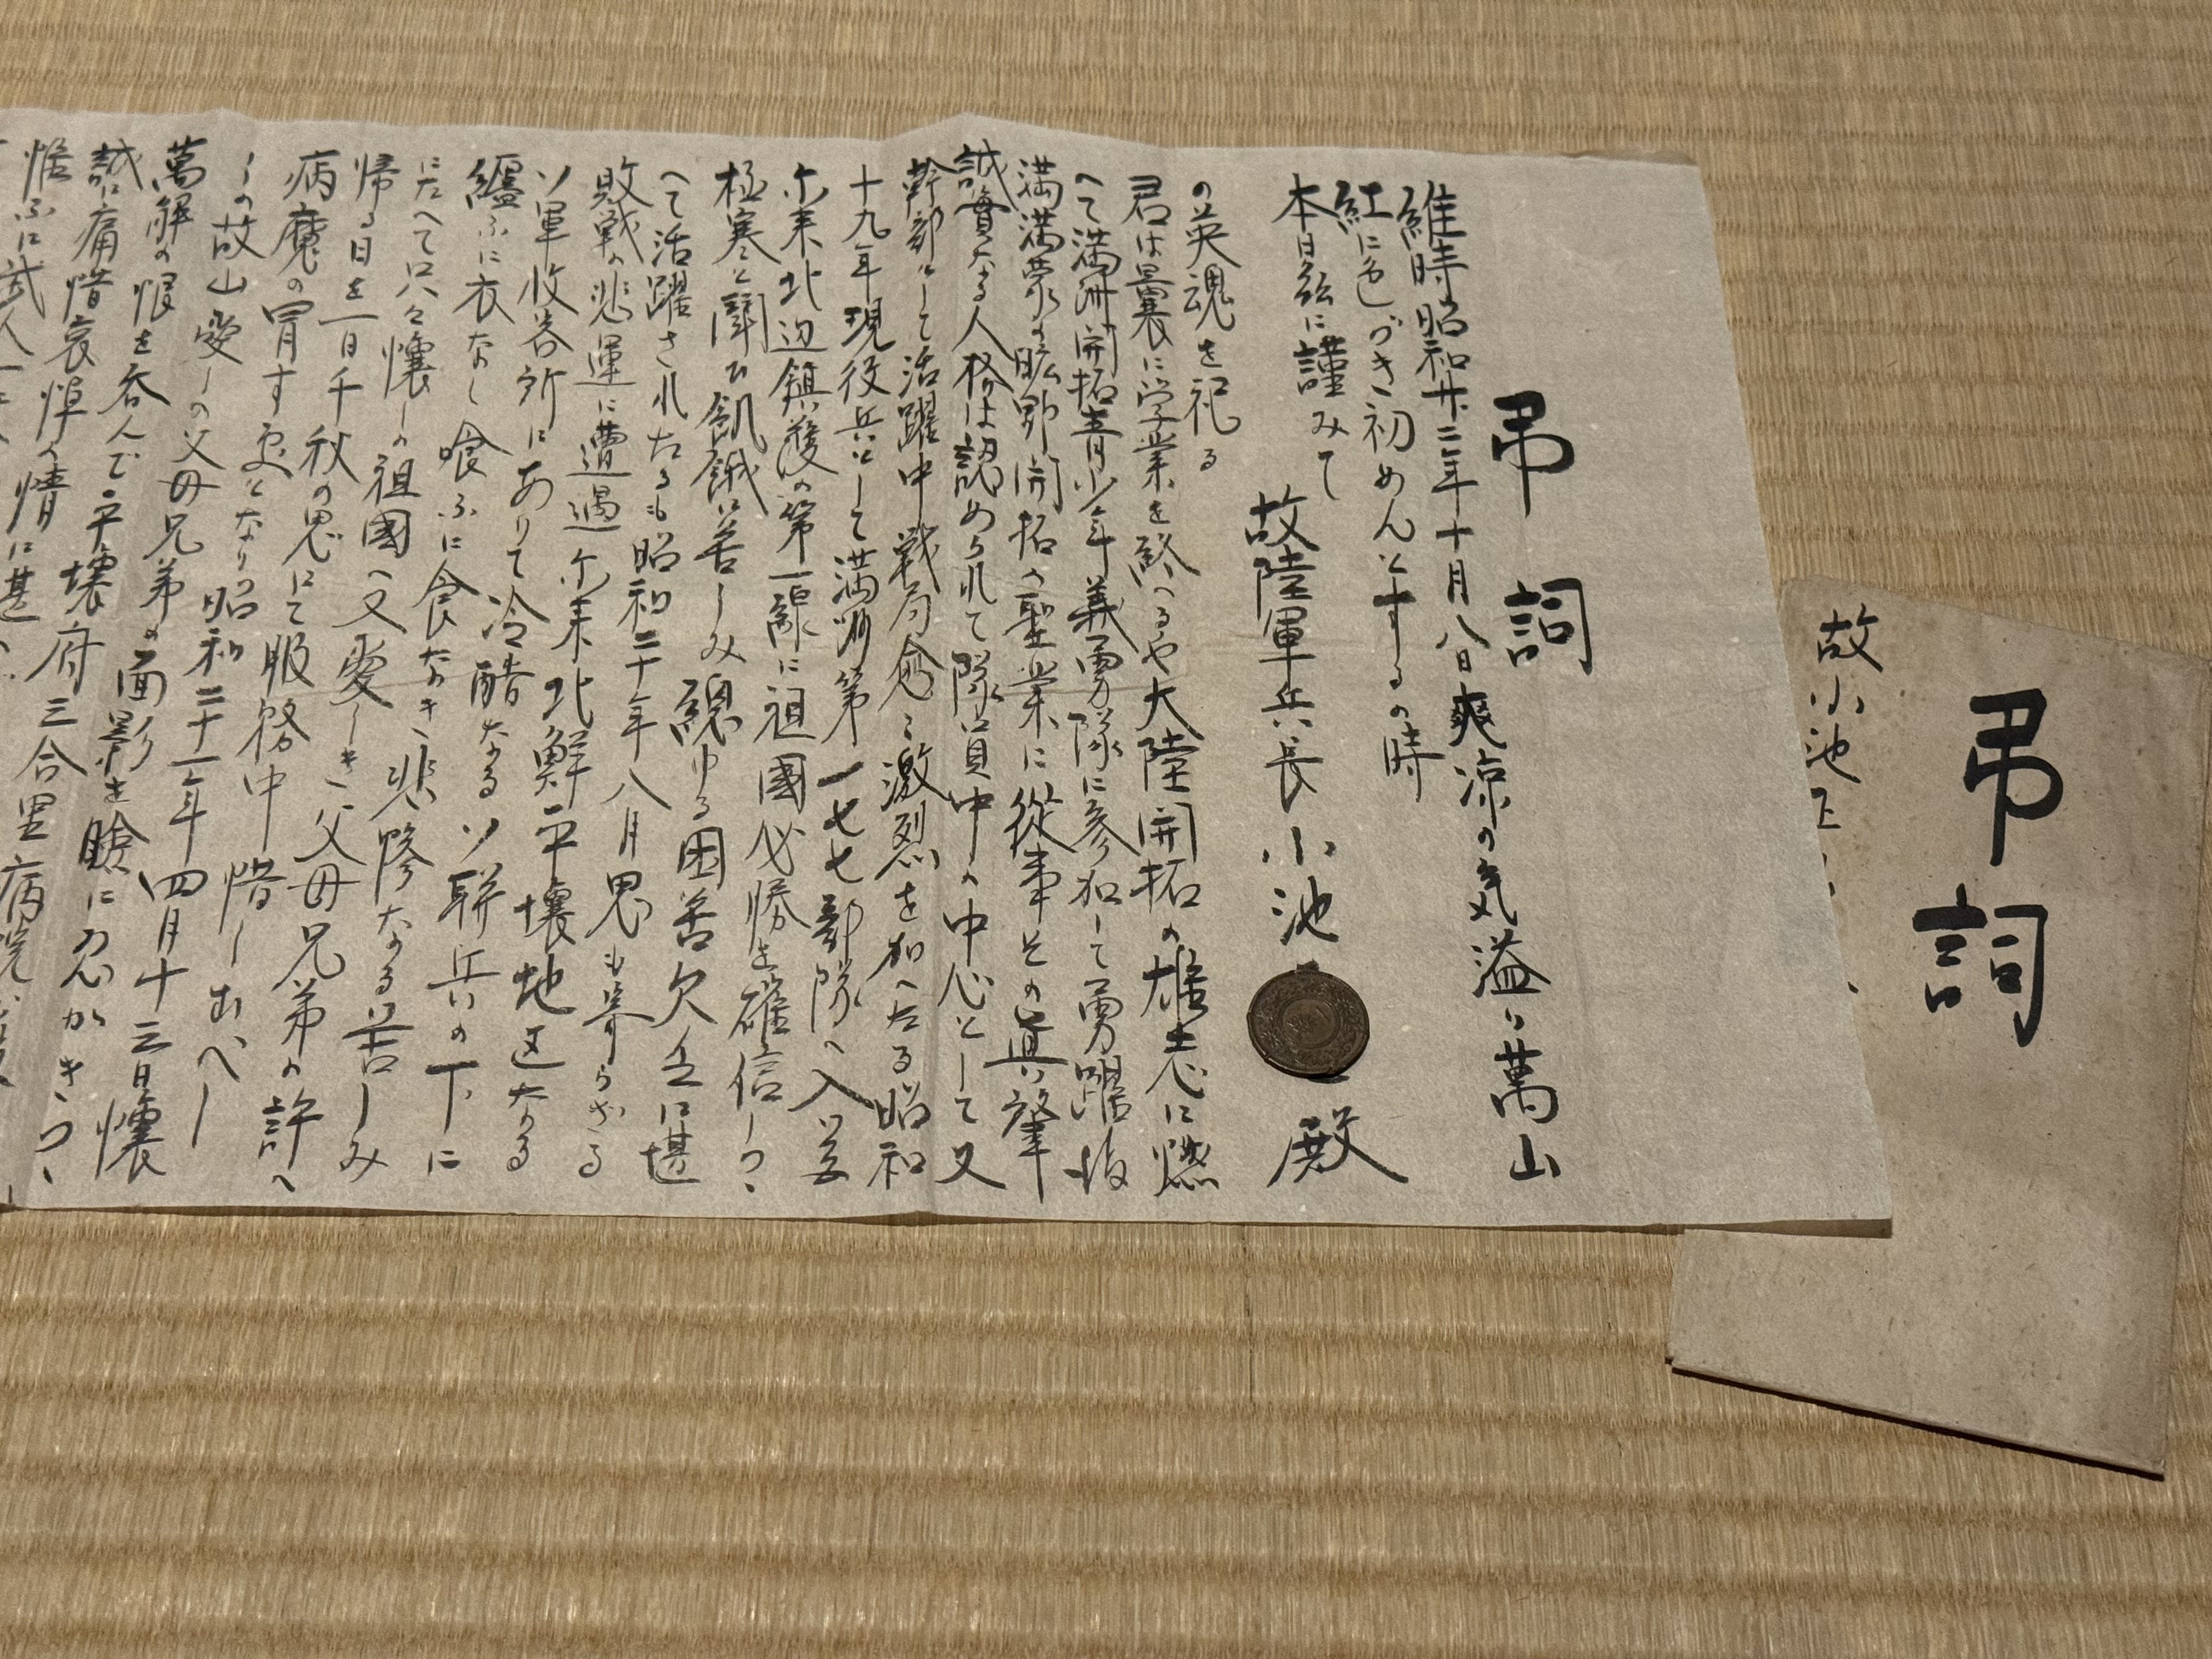 弔詞
故小池正
弔詞
維時昭和廿二年十月八日爽凉の気溢れ萬山
紅に色づき初めんとするの時
本日茲に謹みて
故陸軍兵長小池 殿
の英魂を祀る
君は曩に学業を終へるや大陸開拓の雄志に燃
へて満洲開拓青少年義勇隊に参加して勇躍
満満蒙の曠野開拓の聖業に従事その真摯
誠實なる人格は認められて隊員中の中心として又
幹部として活躍中戦局愈々激烈を加へたる昭和
十九年現役兵として満洲第一七七部隊へ入営
尓来北辺鎮護の第一線に祖國必勝を確信しつゝ
極寒と闘ひ飢餓に苦しみ 困苦欠乏に堪
へて活躍されたるも昭和二十年八月思も寄らざる
敗戦の悲運に遭遇尓来北鮮平壌地区なる
ソ軍收容所にありて冷酷なるソ聯兵の下に
纒ふに衣なし喰ふに食なき悲惨なる苦しみ
にたへて只々懐しの祖國へ又愛しき父母兄弟の許へ
帰る日を一日千秋の思にて服務中惜しむべし
病魔の冒す処となり昭和二十一年四月十三日懐
しの故山愛しの父母兄弟の面影を瞼に忍がきつゝ
萬斛の恨を呑んで平壌府三合里病院
誠に痛惜哀悼の情に甚
惟ふに武人